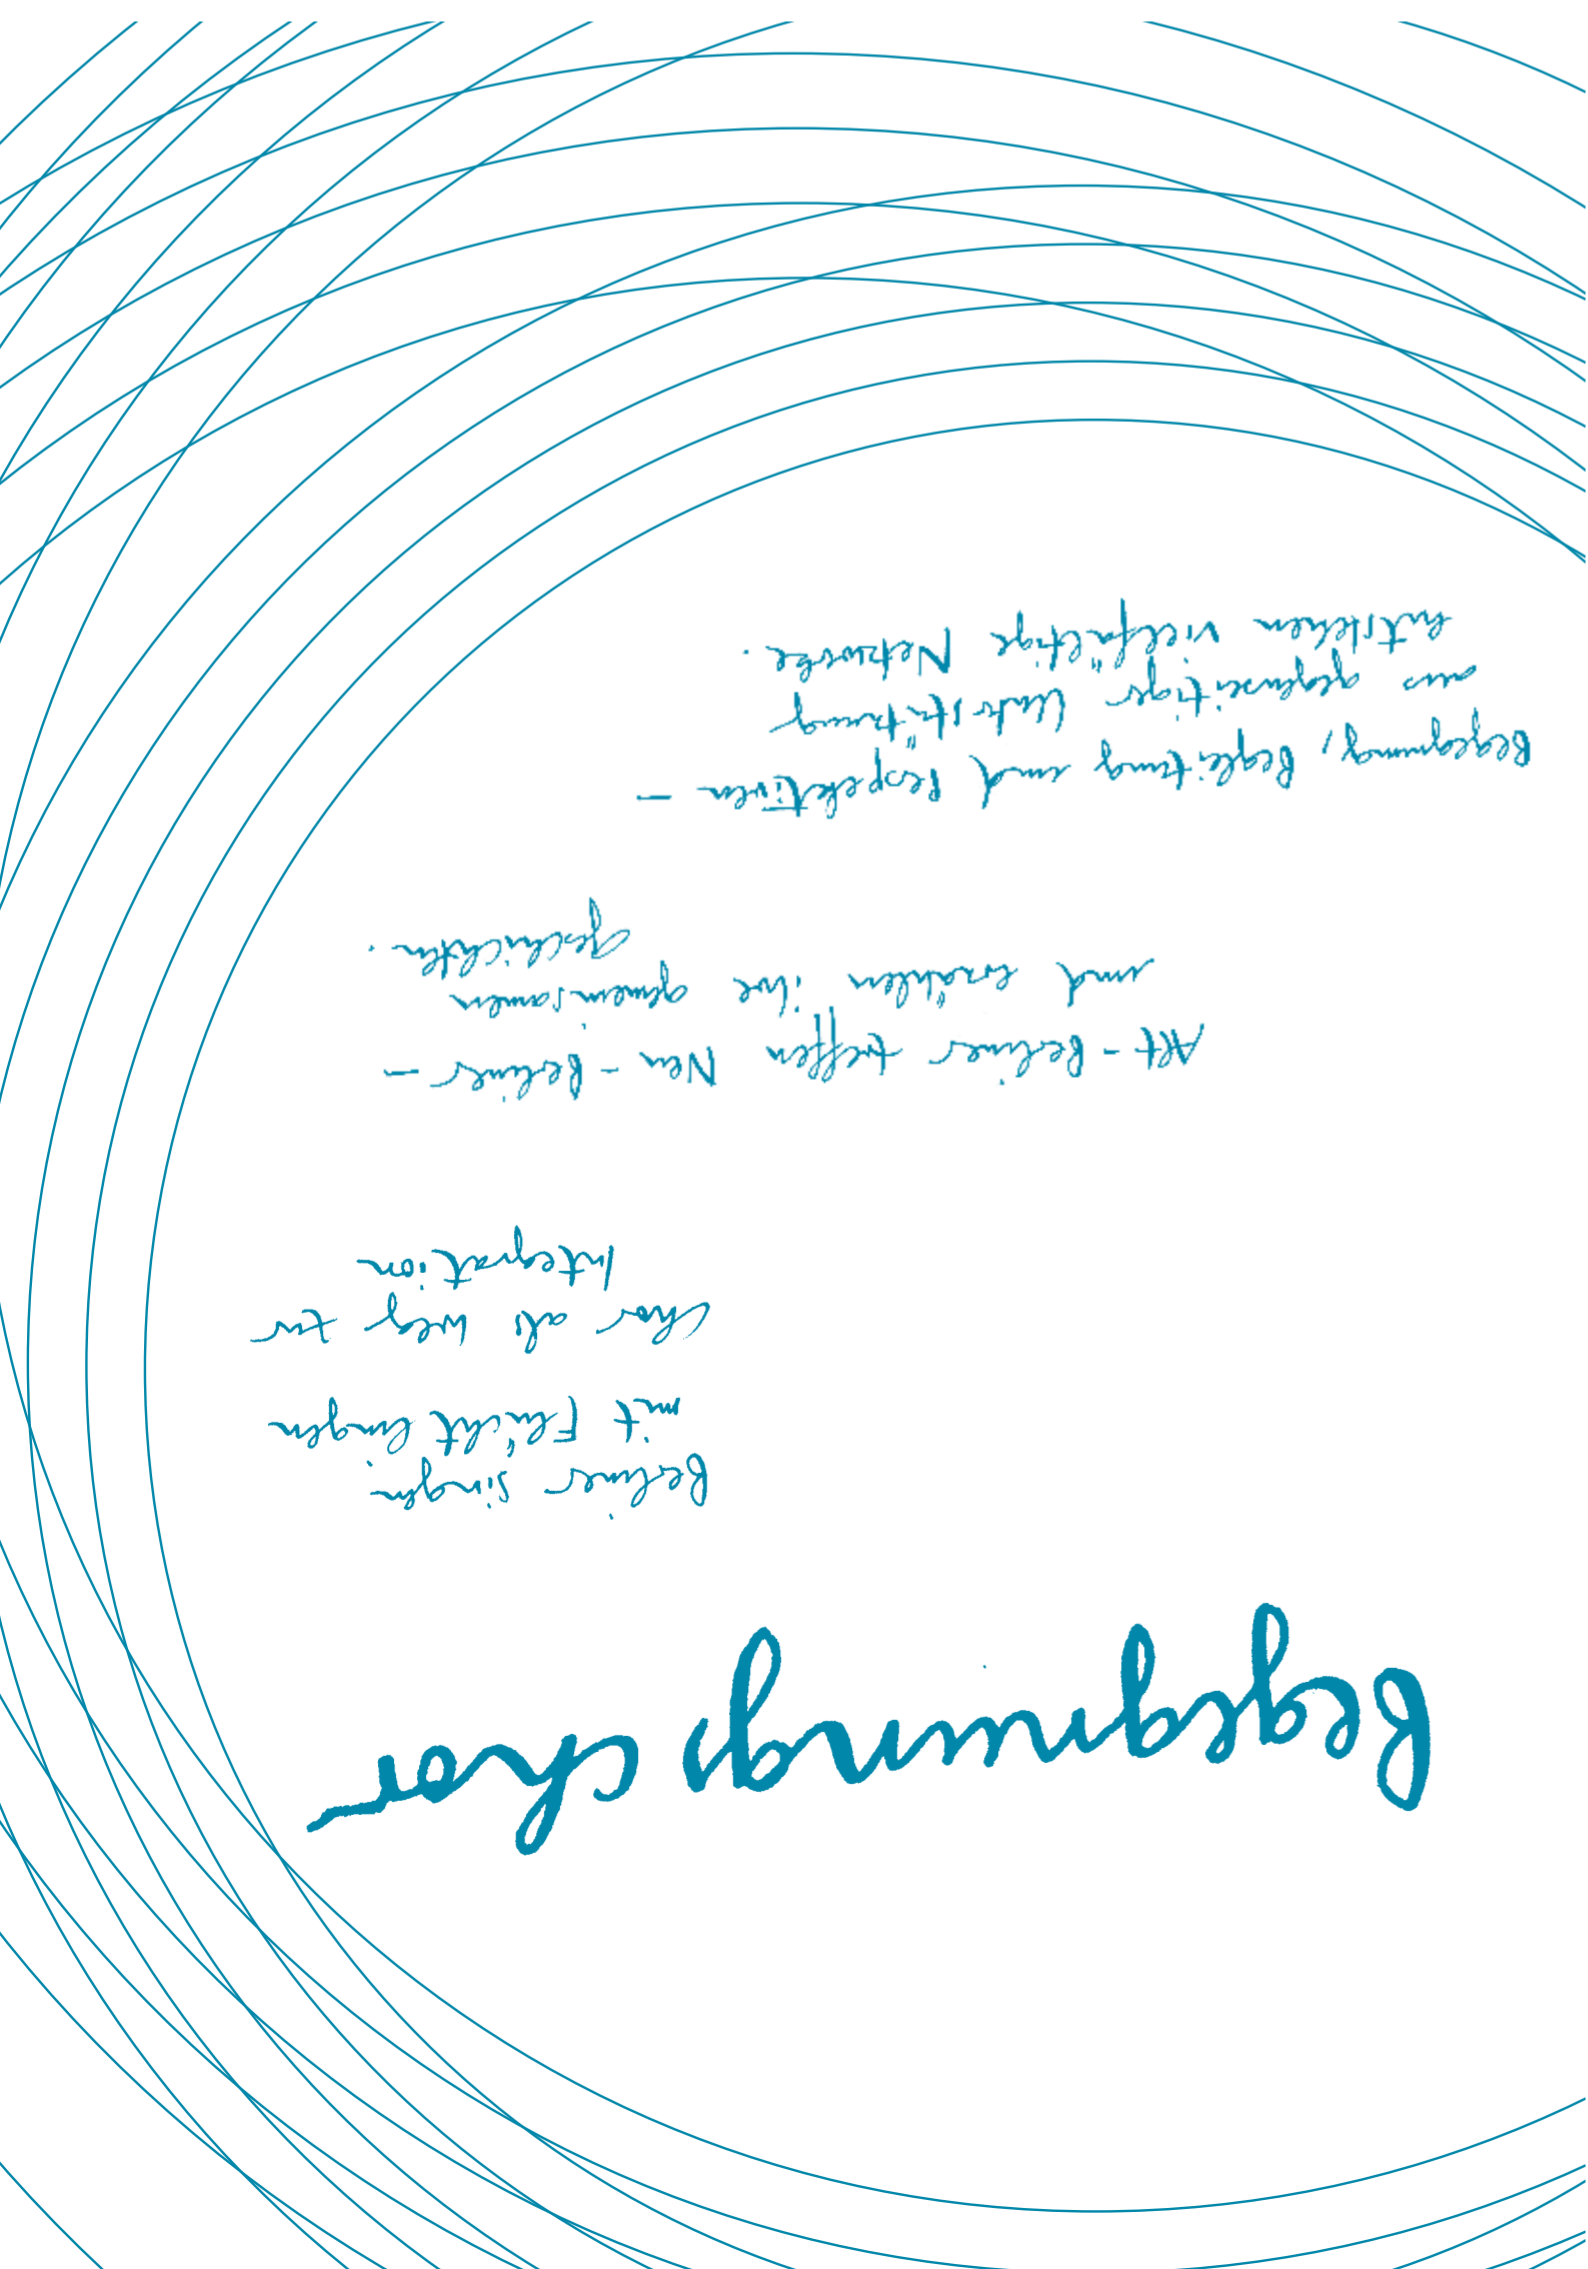 Begegnungschor
Berliner singen
mit Flüchtlingen
Chor als Weg zur
Integration
Alt-Berliner treffen Neu-Berliner –
und erzählen ihre gemeinsamen
Geschichten.
Begegnung, Begleitung und Perspektiven –
aus gegenseitiger Unterstützung
entstehen vielfältige Netzwerke.